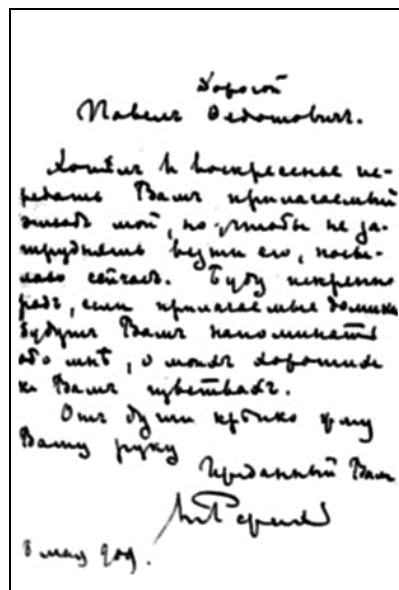 Дорогой
Павелъ Федотовичъ.
Хотѣлъ въ воскресенье пе-
редать Вамъ прилагаемый
этюдъ мой, но, чтобы не за-
труднять везти его, посы-
лаю сейчасъ. Буду искренно
радъ, если прилагаемые домики
будутъ Вамъ напоминать
обо мнѣ, о моихъ хорошихъ
къ Вамъ чувствахъ.
Отъ души крѣпко жму
Вашу руку
Преданный Вамъ
НРерихъ
8 мая